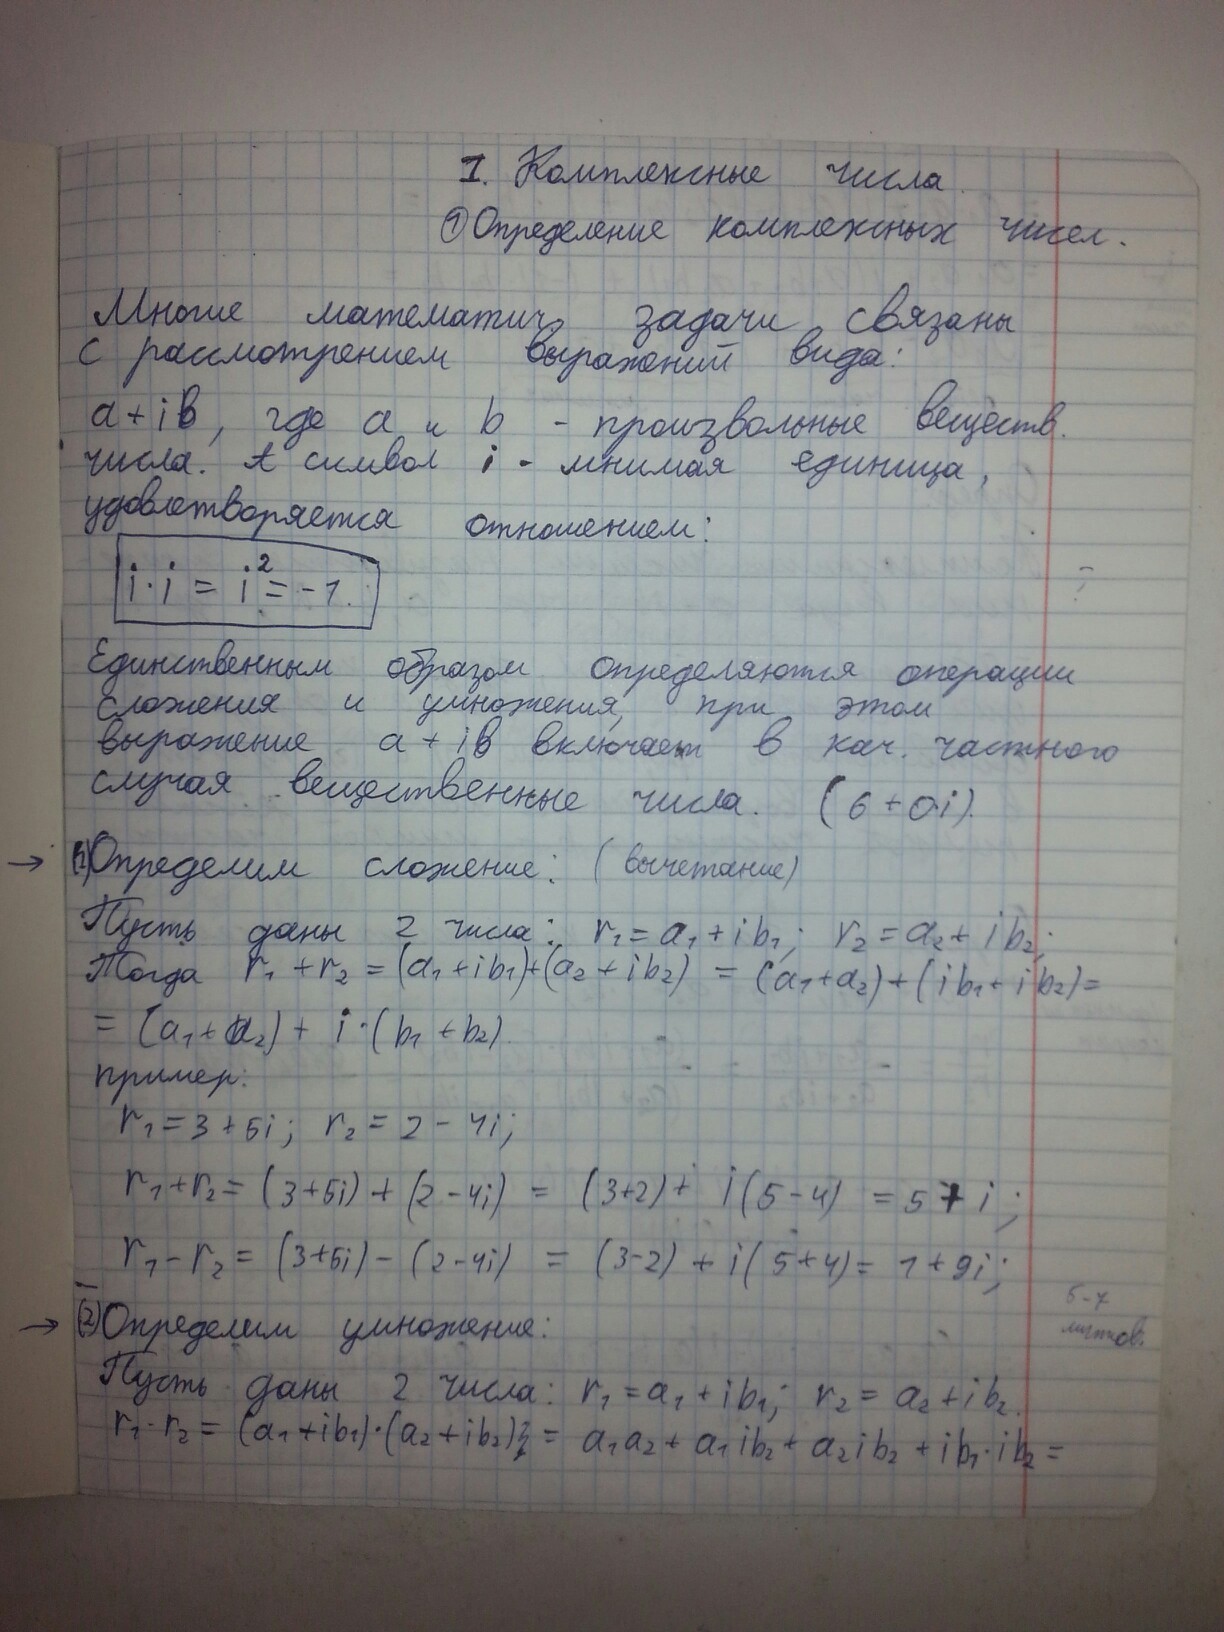 I. Комплексные числа
① Определение комплексных чисел.
Многие математич. задачи связаны
с рассмотрением выражений вида:
a+ib, где a и b - произвольные веществ.
числа. А символ i - мнимая единица,
удовлетворяется отношением:
i·i = i² = -1.
Единственным образом определяются операции
сложения и умножения, при этом
выражение a + ib включает в кач. частного
случая вещественные числа. (6 + 0·i).
→ (1) Определим сложение: (вычетание)
Пусть даны 2 числа: r₁ = a₁ + ib₁; r₂ = a₂ + ib₂;
Тогда r₁ + r₂ = (a₁ + ib₁) + (a₂ + ib₂) = (a₁ + a₂) + (ib₁ + ib₂) =
= (a₁ + a₂) + i·(b₁ + b₂).
пример:
r₁ = 3 + 5i; r₂ = 2 - 4i;
r₁ + r₂ = (3+5i) + (2 - 4i) = (3+2) + i(5 - 4) = 5 + i;
r₁ - r₂ = (3+5i) - (2 - 4i) = (3-2) + i(5+4) = 1 + 9i;
5-7
листков.
→ (2) Определим умножение:
Пусть даны 2 числа: r₁ = a₁ + ib₁; r₂ = a₂ + ib₂.
r₁·r₂ = (a₁ + ib₁)·(a₂ + ib₂) = a₁a₂ + a₁ib₂ + a₂ib₂ + ib₁·ib₂ =